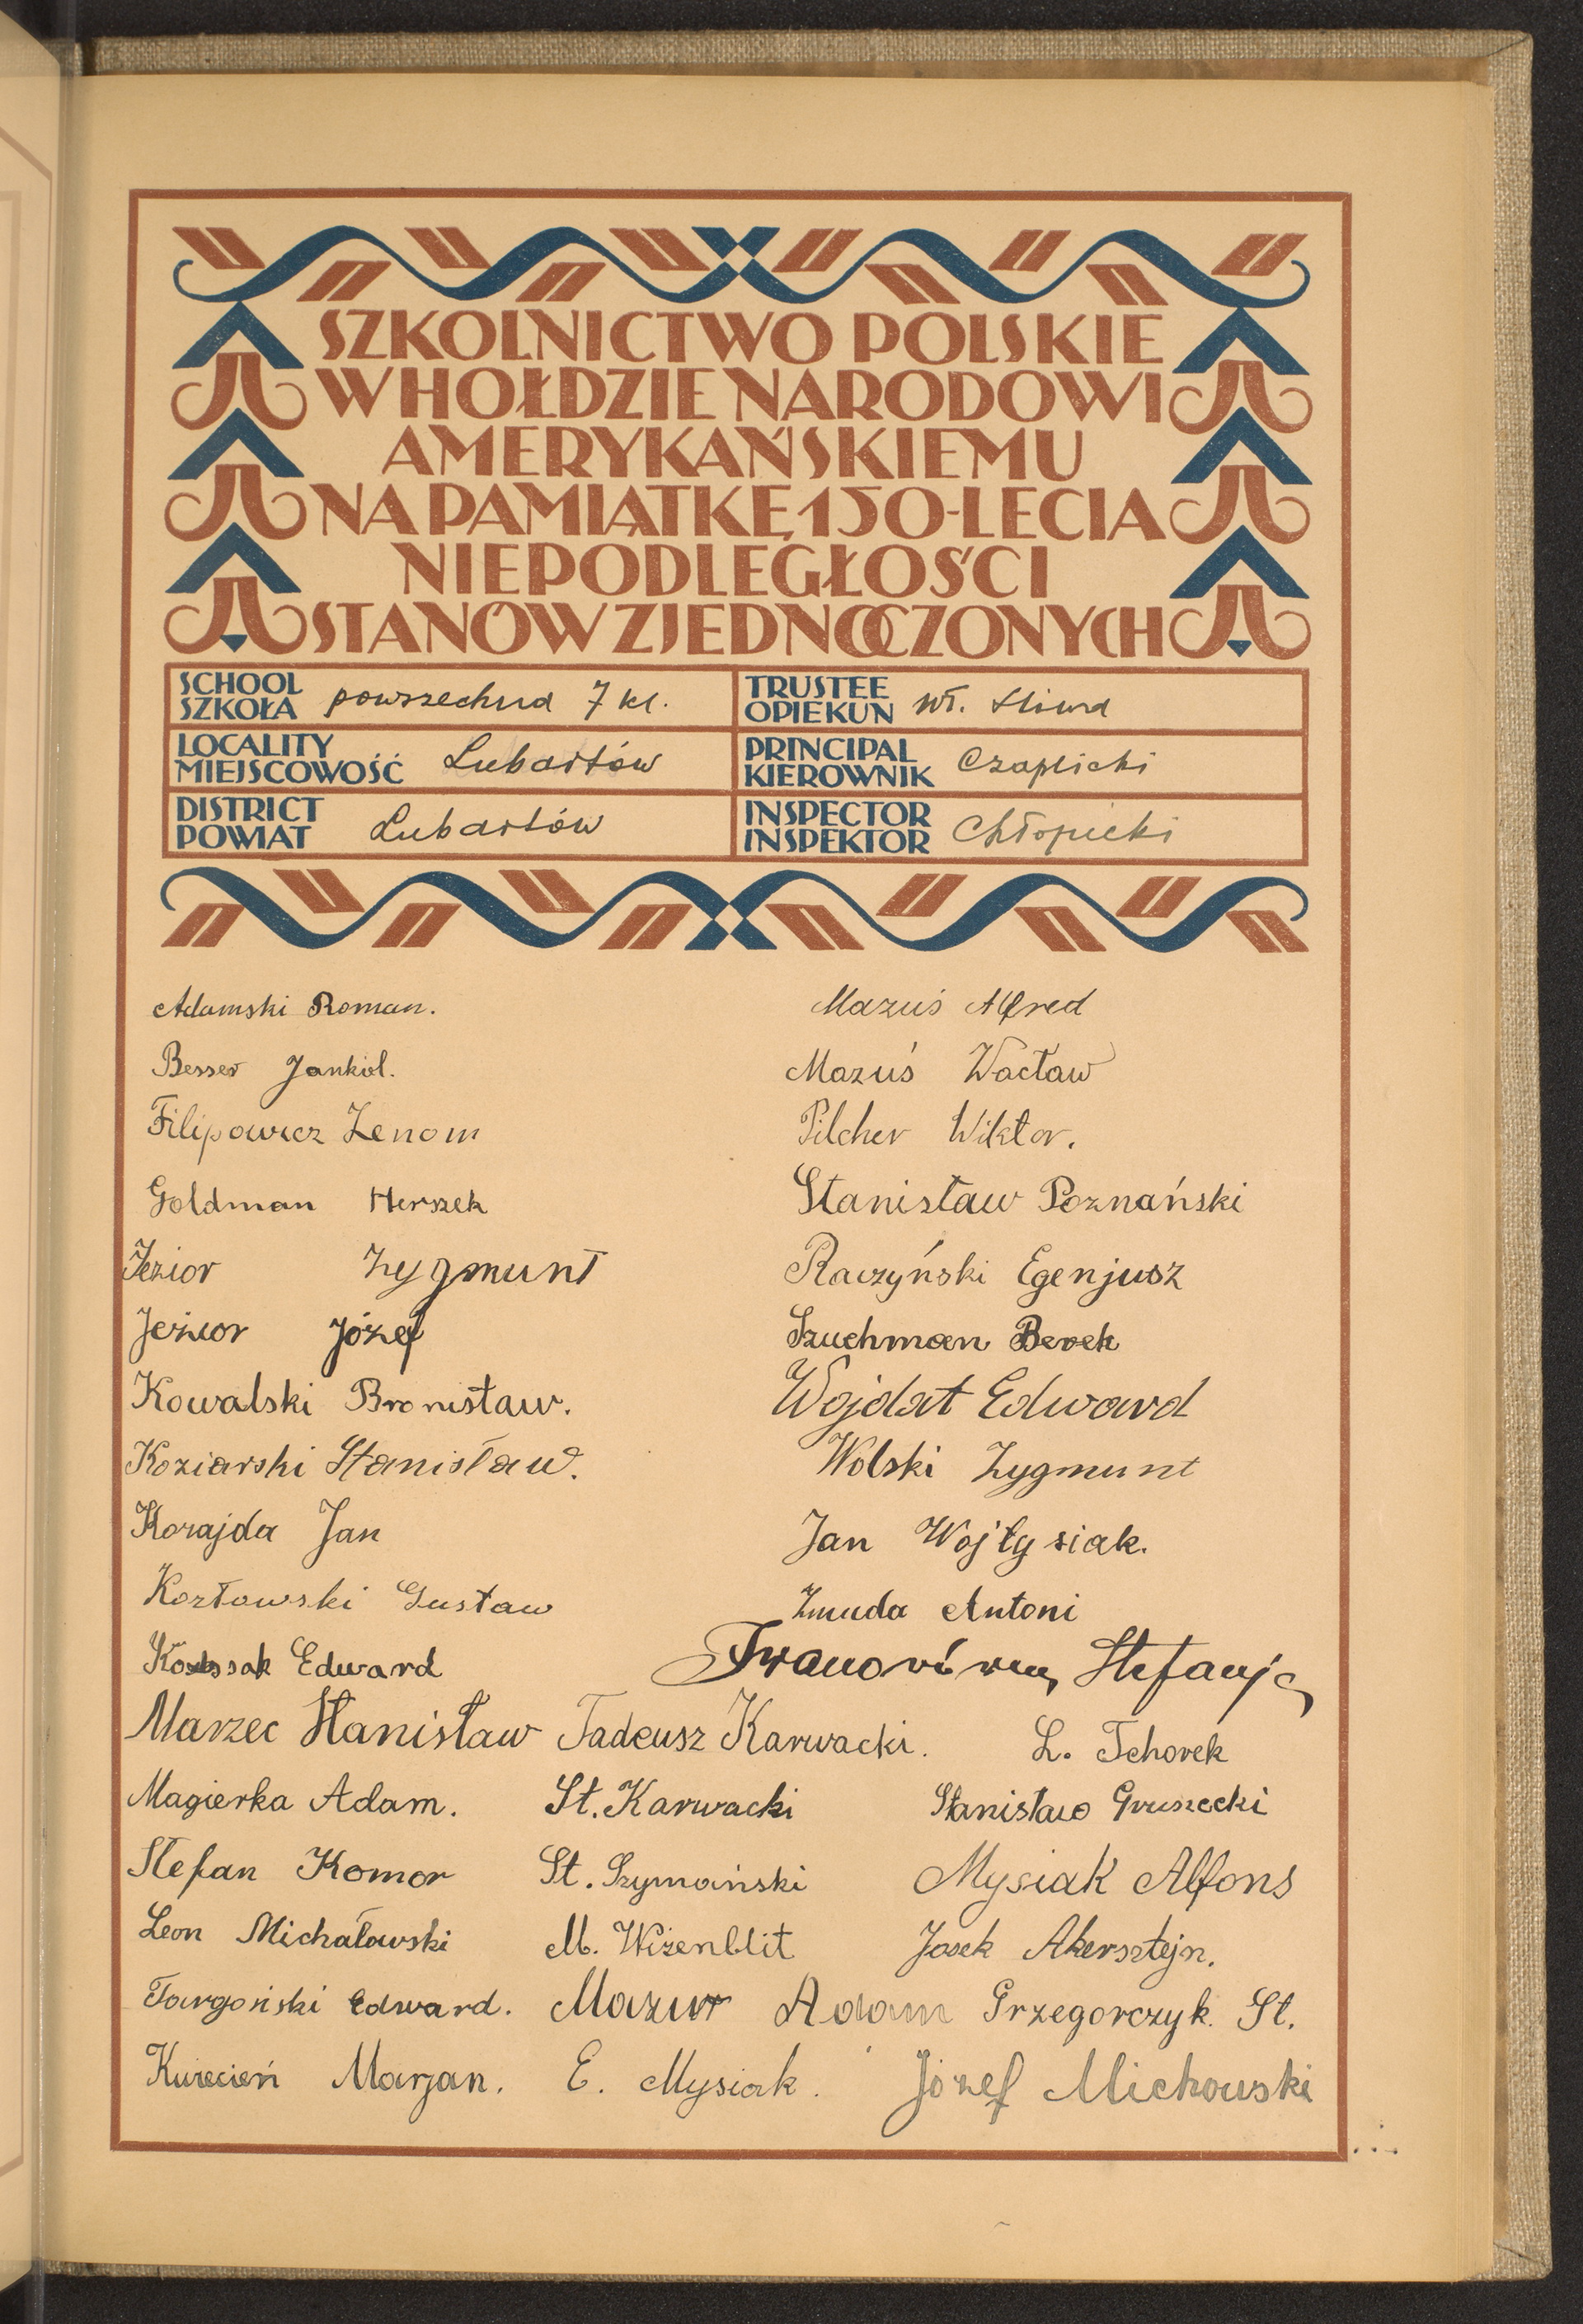 SZKOLNICTWO POLSKIE
W HOŁDZIE NARODOWI
AMERYKAŃSKIEMU
NA PAMIĄTKĘ 150-LECIA
NIEPODLEGŁOŚCI
STANÓW ZJEDNOCZONYCH
SCHOOL
SZKOŁA powszechna 7 kl.
TRUSTEE
OPIEKUN Wł. Śliwa
LOCALITY
MIEJSCOWOŚĆ Lubartów
PRINCIPAL
KIEROWNIK Czaplicki
DISTRICT
POWIAT Lubartów
INSPECTOR
INSPEKTOR Chłopicki
Adamski Roman.
Besser Jankiel.
Filipowicz Zenom
Goldman Herszek
Jezior Zygmunt
Jezior Józef
Kowalski Bronisław.
Koziarski Stanisław.
Korajda Jan
Kozłowski Gustaw
Edward
Mazuś Alfred
Mazuś Wacław
Pilcher Wiktor.
Stanisław Poznański
Raczyński Egenjusz
Szuchman Berek
Wojdat Edward
Wolski Zygmunt
Jan Wojtysiak.
Żmuda Antoni
Stefanja
Marzec Stanisław Tadeusz Karwacki. L. Tchorek
Magierka Adam. St. Karwacki Stanisław Gruszecki
Stefan Komor St. Szymański Mysiak Alfons
Leon Michałowski M. Wizenblit Josek Akersztejn.
Targoński Edward. Mazur Adam Grzegorczyk. St.
Kwiecień Marjan. E. Mysiak. Józef Michowski